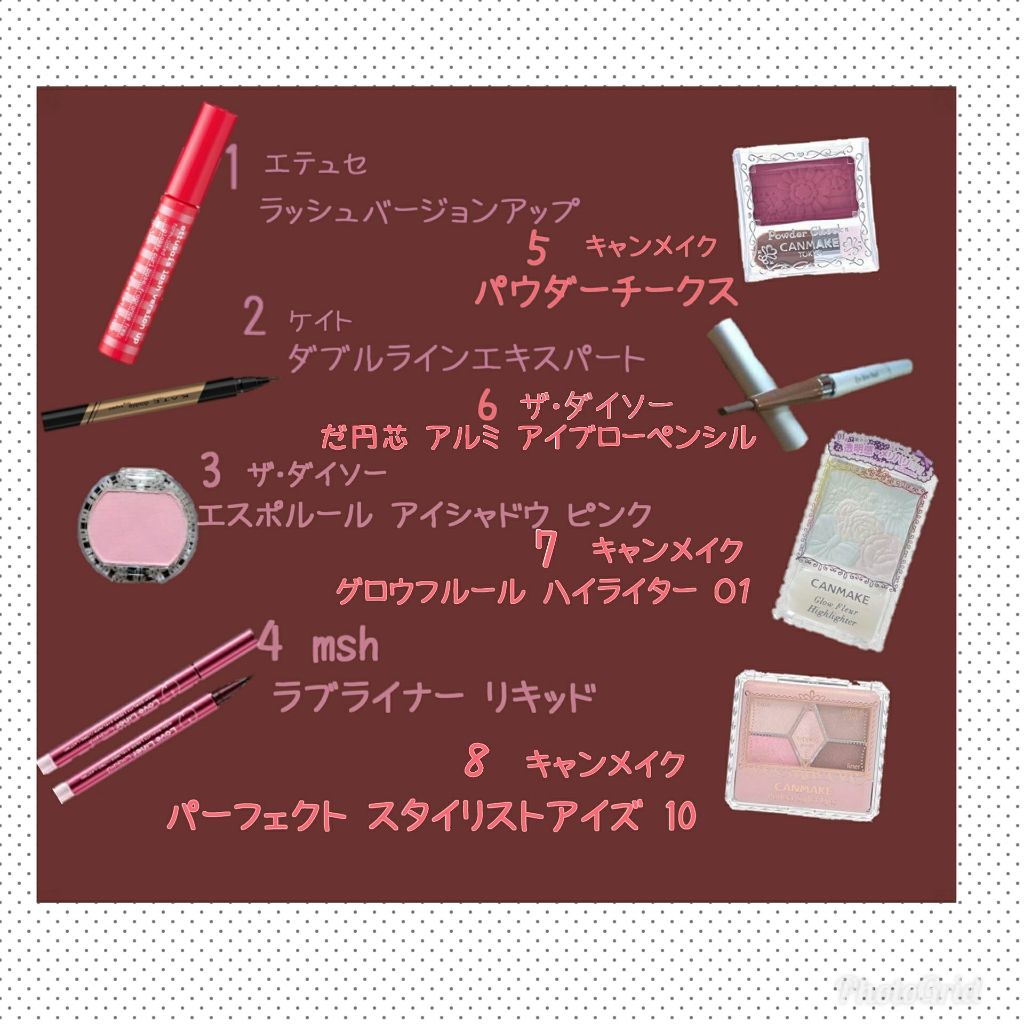 1 エテュセ
ラッシュバージョンアップ
5 キャンメイク
パウダーチークス
2 ケイト
ダブルラインエキスパート
6 ザ・ダイソー
だ円芯 アルミ アイブローペンシル
3 ザ・ダイソー
エスポルール アイシャドウ ピンク
7 キャンメイク
グロウフルール ハイライター 01
4 msh
ラブライナー リキッド
8 キャンメイク
パーフェクト スタイリストアイズ 10
ettusais lash version up
Powder Cheeks
CANMAKE
TOKYO
KATE
透明感
CANMAKE
Glow Fleur
Highlighter
Love Liner
Love Liner
liner
CANMAKE
PhotoGrid